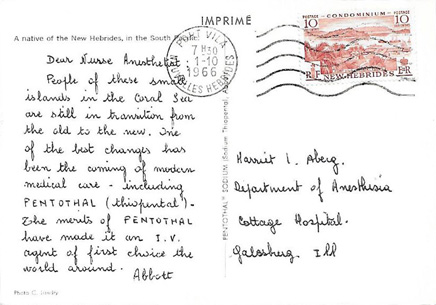 IMPRIMÉ
A native of the New Hebrides, in the South Pacific.
Dear Nurse Anesthetist
People of these small
islands in the Coral Sea
are still in transition from
the old to the new. One
of the best changes has
been the coming of modern
medical care - including
PENTOTHAL (thiopental).
The merits of PENTOTHAL
have made it an I.V.
agent of first choice the
world around.
Abbott
PORT VILA
7H30
1-10
1966
NOUVELLES HEBRIDES
POSTAGE CONDOMINIUM POSTAGE
10 10
RF NEW HEBRIDES ER
PENTOTHAL® SODIUM (Sodium Thiopental), Abbott
Harriet I. Aberg.
Department of Anesthisia
Cottage Hospital.
Galesburg Ill
Photo C.